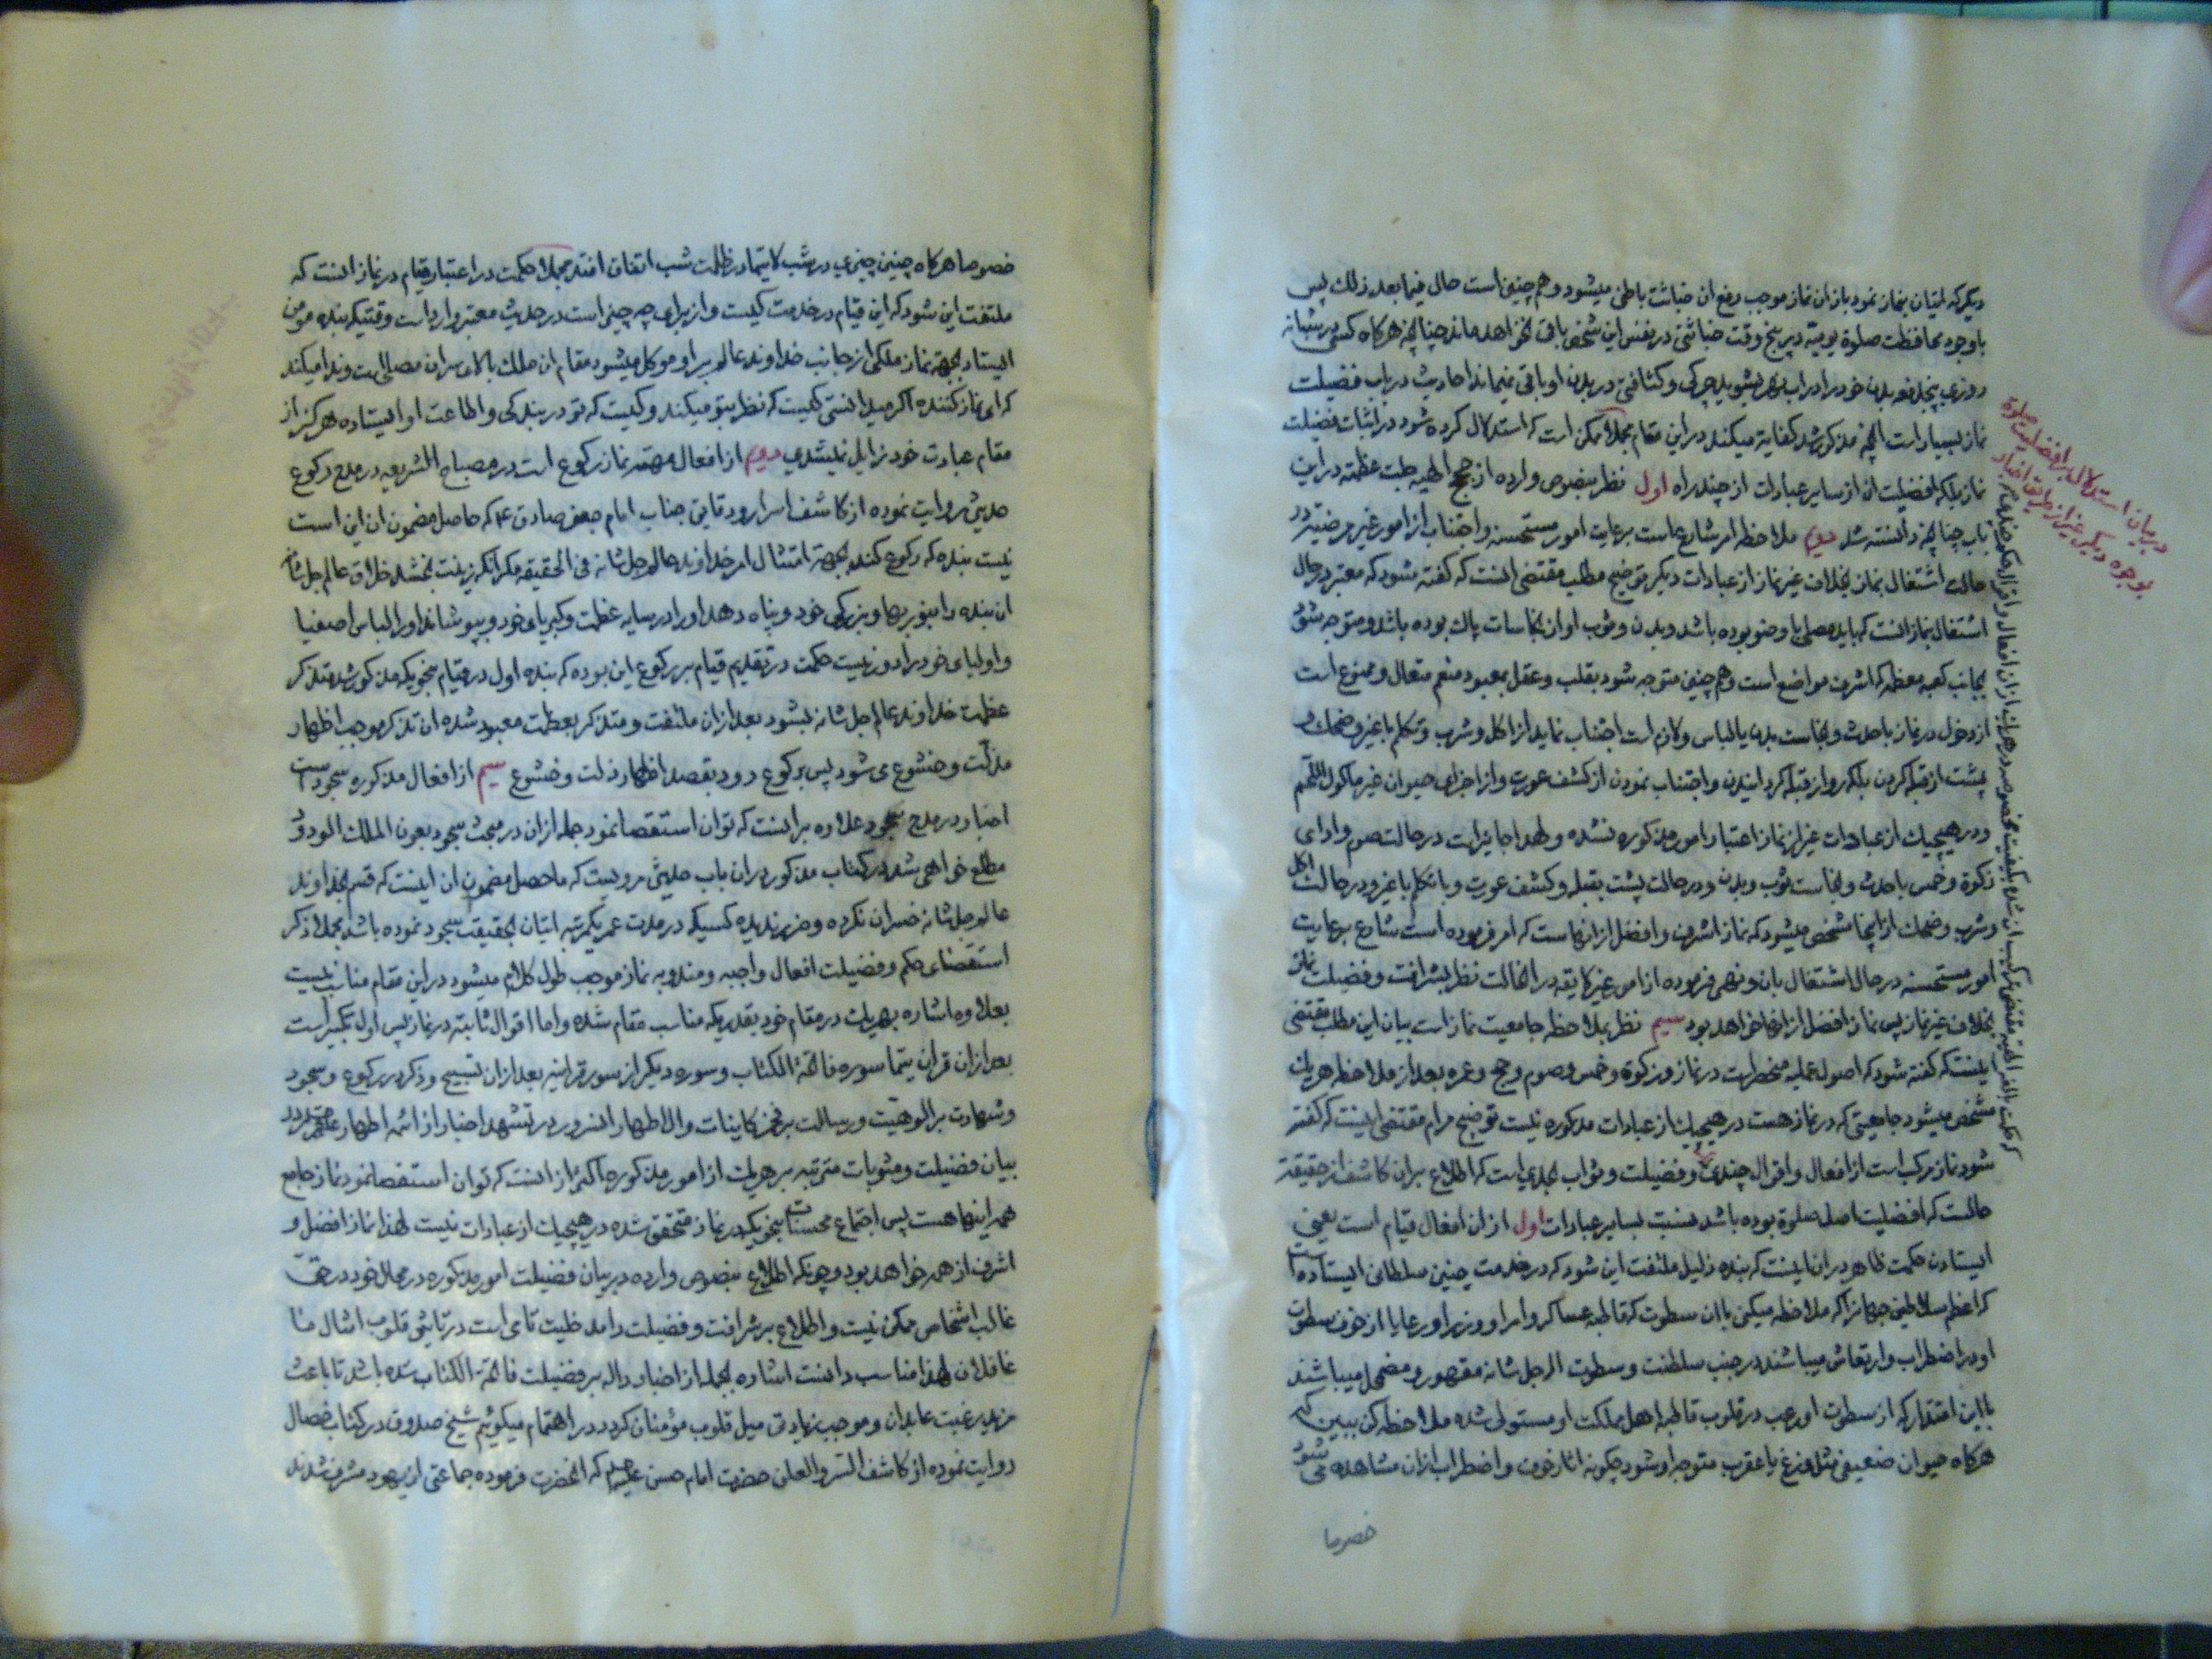 دیگر که اتیان بنماز نمود باز ان نماز موجب رفع ان خباثت باطنی میشود و هم چنین است حال فیما بعد ذلك پس
با وجود محافظت صلوة یومیه در پنج وقت خباثتی در نفس این شخص باقی نخواهد ماند چنانچه هرگاه کسی در شبانه
روزی پنجدفعه بدن خود را در اب نهر بشوید چرکی و کثافتی در بدن او باقی نمیماند احادیث در باب فضیلت
نماز بسیار است انچه مذکور شد کفایة میکند در این مقام مجملا ممکن است که استدلال کرده شود در اثبات فضیلت
نماز بلکه افضلیت ان از سایر عبادات از چند راه اول نظر بنصوص وارده از حجج الهیه جلت عظمته در این
باب چنانچه دانسته شد دویم ملاحظه امر شارع است برعایت امور مستحسنه و اجتناب از امور غیر مرضیه در
حالت اشتغال بنماز بخلاف غیر نماز از عبادات دیگر توضیح مطلب مقتضی انست که گفته شود که معتبر در حال
اشتغال بنماز انست که باید مصلی با وضو بوده باشد و بدن و ثوب او از نجاسات پاك بوده باشد و متوجه شود
بجانب کعبه معظمه که اشرف مواضع است و هم چنین متوجه شود بقلب و عقل بمعبود منعم متعال و ممنوع است
از دخول در نماز با حدث و نجاست بدن یا لباس و لازم است اجتناب نماید از اکل و شرب و تکلم با غیر و ضحك و
پشت از قبله کردن بلکه رو از قبله گردانیدن و اجتناب نمودن از کشف عورت و از اجزای حیوان غیر ماکول اللحم
و در هیچیك از عبادات غیر از نماز اعتبار امور مذکوره نشده و لهذا جایز است در حالت صوم و ادای
زکوة و خمس با حدث و نجاست ثوب و بدن و در حالت پشت بقبله و کشف عورت و با تکلم با غیر و در حالت اکل
و شرب و ضحك از اینجا مشخص میشود که نماز اشرف و افضل از انهاست که امر فرموده است شارع برعایت
امور مستحسنه در حال اشتغال بان و نهی فرموده از امور غیر لایقه در انحالت نظر بشرافت و فضیلت نماز
بخلاف غیر نماز پس نماز افضل از انها خواهد بود سیم نظر بملاحظه جامعیت نماز است بیان این مطلب مقتضی
اینست که گفته شود که اصول عملیه منحصر است در نماز و زکوة و خمس و صوم و حج و غیره بعد از ملاحظه هریك
مشخص میشود جامعیتی که در نماز هست در هیچیك از عبادات مذکوره نیست توضیح مرام مقتضی اینست که گفته
شود نماز مرکب است از افعال و اقوال چندی و فضیلت و ثواب بحدی است که اطلاع بران کاشف از حقیقة
حالست که افضلیت اصل صلوة بوده باشد نسبت بسایر عبادات اول از ان افعال قیام است یعنی
ایستادن حکمت ظاهر در ان اینست که بنده ذلیل ملتفت این شود که در خدمت چنین سلطانی ایستاده است
که اعظم سلاطین جهان را که ملاحظه میکنی با ان سطوت که قاطبه عساکر و امرا و وزیر و رعایا از خوف سطوت
او در اضطراب و ارتعاش میباشند در جنب سلطنت و سطوت اله جل شانه مقهور و مضمحل میباشند
با این اقتدار که از سطوت او رعب در قلوب قاطبه اهل مملکت او مستولی شده ملاحظه کن ببین که
هرگاه حیوان ضعیفی مثل وزغ یا عقرب متوجه او شود چگونه اثار خوف و اضطراب از ان مشاهده می شود
خصوصا
در بیان استدلال بر افضلیت صلوة
بوجوه دیگر غیر از طریق اخبار
خصوصا هرگاه چنین چیزی در شب لا سیما در ظلمت شب اتفاق افتد مجملا حکمت در اعتبار قیام در نماز انست که
ملتفت این شود که این قیام در خدمت کیست و از برای چه چیز است در حدیث معتبر وارد است وقتیکه بنده مؤمن
ایستاد بجهة نماز ملکی از جانب خداوند عالم بر او موکل میشود مقام ان ملك بالای سر ان مصلی است و ندا میکند
که ای نماز کننده اگر میدانستی کیست که نظر بتو میکند و کیست که تو در بندگی و اطاعت او ایستاده هرگز از
مقام عبادت خود زایل نمیشدی دویم از افعال معتبره نماز رکوع است در مصباح الشریعه در مدح رکوع
حدیثی روایت نموده از کاشف اسرار و دقایق جناب امام جعفر صادق ع که حاصل مضمون ان این است
نیست بنده که رکوع کند بجهة امتثال امر خداوند عالم جل شانه فی الحقیقه مگر انکه زینت بخشد خلاق عالم جل شانه
ان بنده را بنور بها و بزرگی خود و پناه دهد او را در سایه عظمت و کبریای خود و بپوشاند او را لباس اصفیا
و اولیای خود را دور نیست حکمت در تقدیم قیام بر رکوع این بوده که بنده اول در قیام بنحویکه مذکور شد متذکر
عظمت خداوند عالم جل شانه بشود بعد از ان ملتفت و متذکر بعظمت معبود شده ان تذکر موجب اظهار
مذلت و خشوع می شود پس برکوع رود بقصد اظهار ذلت و خشوع سیم از افعال مذکوره سجود است
اخبار در مدح سجود علاوه بر انست که توان استقصا نمود جمله از ان در مبحث سجود بعون الملك الودود
مطلع خواهی شد در کتاب مذکور در ان باب حدیثی مرویست که ماحصل مضمون ان اینست که قسم بخداوند
عالم جل شانه خسران نکرده و ضرر ندیده کسیکه در مدت عمر یکمرتبه اتیان بحقیقت سجود نموده باشد مجملا ذکر
استقصای حکم و فضیلت افعال واجبه و مندوبه نماز موجب طول کلام میشود در این مقام مناسب نیست
بعلاوه اشاره بهریك در مقام خود بقدریکه مناسب مقام شده و اما اقوال ثابته در نماز پس اول تکبیر است
بعد از ان قران سیما سوره فاتحة الکتاب و سوره دیگر از سور قرانیه بعد از ان تسبیح و ذکر در رکوع و سجود
و شهادت بر الوهیت و رسالت بر فخر کاینات و ال اطهار انسرور در تشهد اخبار از ائمه اطهار علیهم در
بیان فضیلت و مثوبات مترتبه بر هریك از امور مذکوره اکثر از انست که توان استقصا نمود نماز جامع
همه اینها هست پس اجتماع محسنات بنحویکه در نماز متحقق شده در هیچیك از عبادات نیست لهذا نماز افضل و
اشرف از همه خواهد بود و چونکه اطلاع بنصوص وارده در بیان فضیلت امور مذکوره در محال خود در حق
غالب اشخاص ممکن نیست و اطلاع بر شرافت و فضیلت را مدخلیت تامی است در تاثیر قلوب امثال ما
غافلان لهذا مناسب دانست اشاره بجمله از اخبار داله بر فضیلت فاتحة الکتاب شده باشد تا باعث
مزید رغبت عابدان و موجب زیادتی میل قلوب مؤمنان گردد در اهتمام میگوئیم شیخ صدوق در کتاب خصال
روایت نموده از کاشف السر و العلن حضرت امام حسن علیه السلام که انحضرت فرموده جماعتی از یهود مشرف شدند